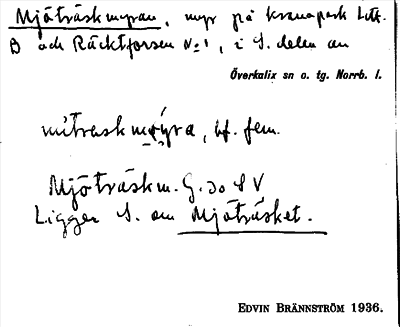 Mjöträskmyran, myr på kronopark Litt.
B och Räcktforsen No 1, i S. delen av
Överkalix sn o. tg. Norrb. l.
mitraskmýra, bf. fem.
Mjöträskm. G. 30 S V
Ligger S. om Mjöträsket.
EDVIN BRÄNNSTRÖM 1936.